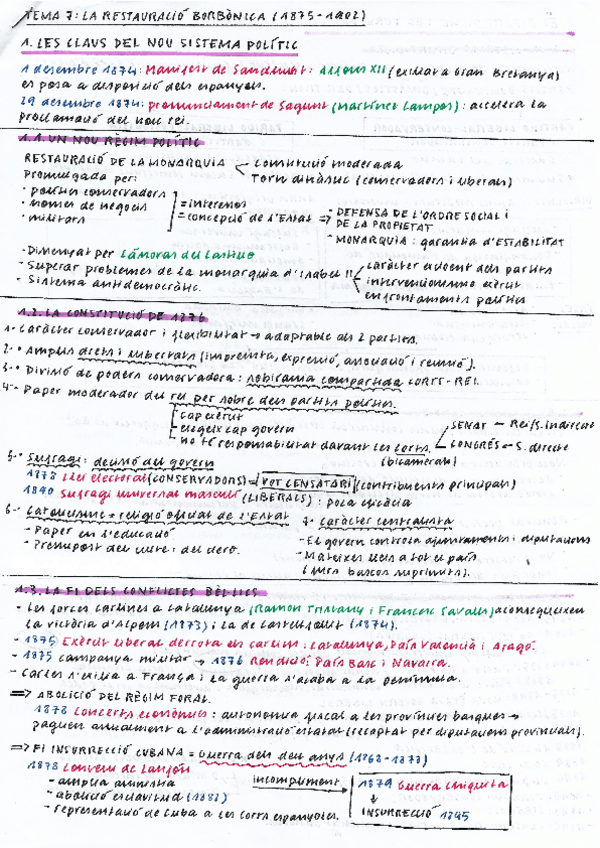 TEMA 7: LA RESTAURACIÓ BORBÒNICA (1875-1902)
1. LES CLAUS DEL NOU SISTEMA POLÍTIC
1 desembre 1874: Manifest de Sandhurst: Alfons XII (exiliat a Gran Bretanya)
es posa a disposició dels espanyols.
29 desembre 1874: pronunciament de Sagunt (Martínez Campos): accelera la
proclamació del nou rei.
1.1. UN NOU RÈGIM POLÍTIC
RESTAURACIÓ DE LA MONARQUIA - Constitució moderada
Promulgada per: - Torn dinàstic (conservadors i liberals)
· polítics conservadors
· homes de negocis = interessos
· militars = concepció de l'Estat ⇒ - DEFENSA DE L'ORDRE SOCIAL i
DE LA PROPIETAT
- MONARQUIA: garantia d'ESTABILITAT
- Dissenyat per Cánovas del Castillo
- Superar problemes de la monarquia d'Isabel II caràcter excloent dels partits
- Sistema antidemocràtic. intervencionisme exèrcit
enfrontaments polítics
1.2. LA CONSTITUCIÓ DE 1876
1- Caràcter conservador i flexibilitat → adaptable als 2 partits.
2- · Amplis drets i llibertats (impremta, expressió, associació i reunió).
3- · Divisió de poders conservadora: sobirania compartida CORTS-REI.
4- · Paper moderador del rei per sobre dels partits polítics.
cap exèrcit
elegeix cap govern
no té responsabilitat davant les Corts. SENAT - Rei/S. indirecte
CONGRÉS - S. directe
(bicameral)
5- · Sufragi: decisió del govern
1878 Llei electoral (CONSERVADORS) = VOT CENSATARI (contribuents principals)
1890 Sufragi universal masculí (LIBERALS): poca eficàcia
6- Catolicisme = religió oficial de l'Estat
- Paper en l'educació
- Pressupost del culte i del clero.
7- Caràcter centralista
- El govern controla ajuntaments i diputacions
- Mateixes lleis a tot el país
(furs bascos suprimits).
1.3. LA FI DELS CONFLICTES BÈL·LICS
- Les forces carlines a Catalunya (Ramon Tristany i Francesc Savalls) aconsegueixen
la victòria d'Alpens (1873) i la de Castellfollit (1874).
- 1875 Exèrcit liberal derrota els carlins: Catalunya, País Valencià i Aragó.
- 1875 campanya militar → 1876 Rendició País Basc i Navarra.
- Carles s'exilia a França i la guerra s'acaba a la península.
⇒ ABOLICIÓ DEL RÈGIM FORAL.
1878 Concerts econòmics: autonomia fiscal a les províncies basques →
paguen anualment a l'administració estatal (recaptat per diputacions provincials).
⇒ FI INSURRECCIÓ CUBANA = Guerra dels deu anys (1868-1878)
1878 Conveni de Zanjón
- àmplia amnistia
- abolició esclavitud (1888)
- representació de Cuba a les Corts espanyoles.
incompliment
1879 Guerra Chiquita
↓
INSURRECCIÓ 1895